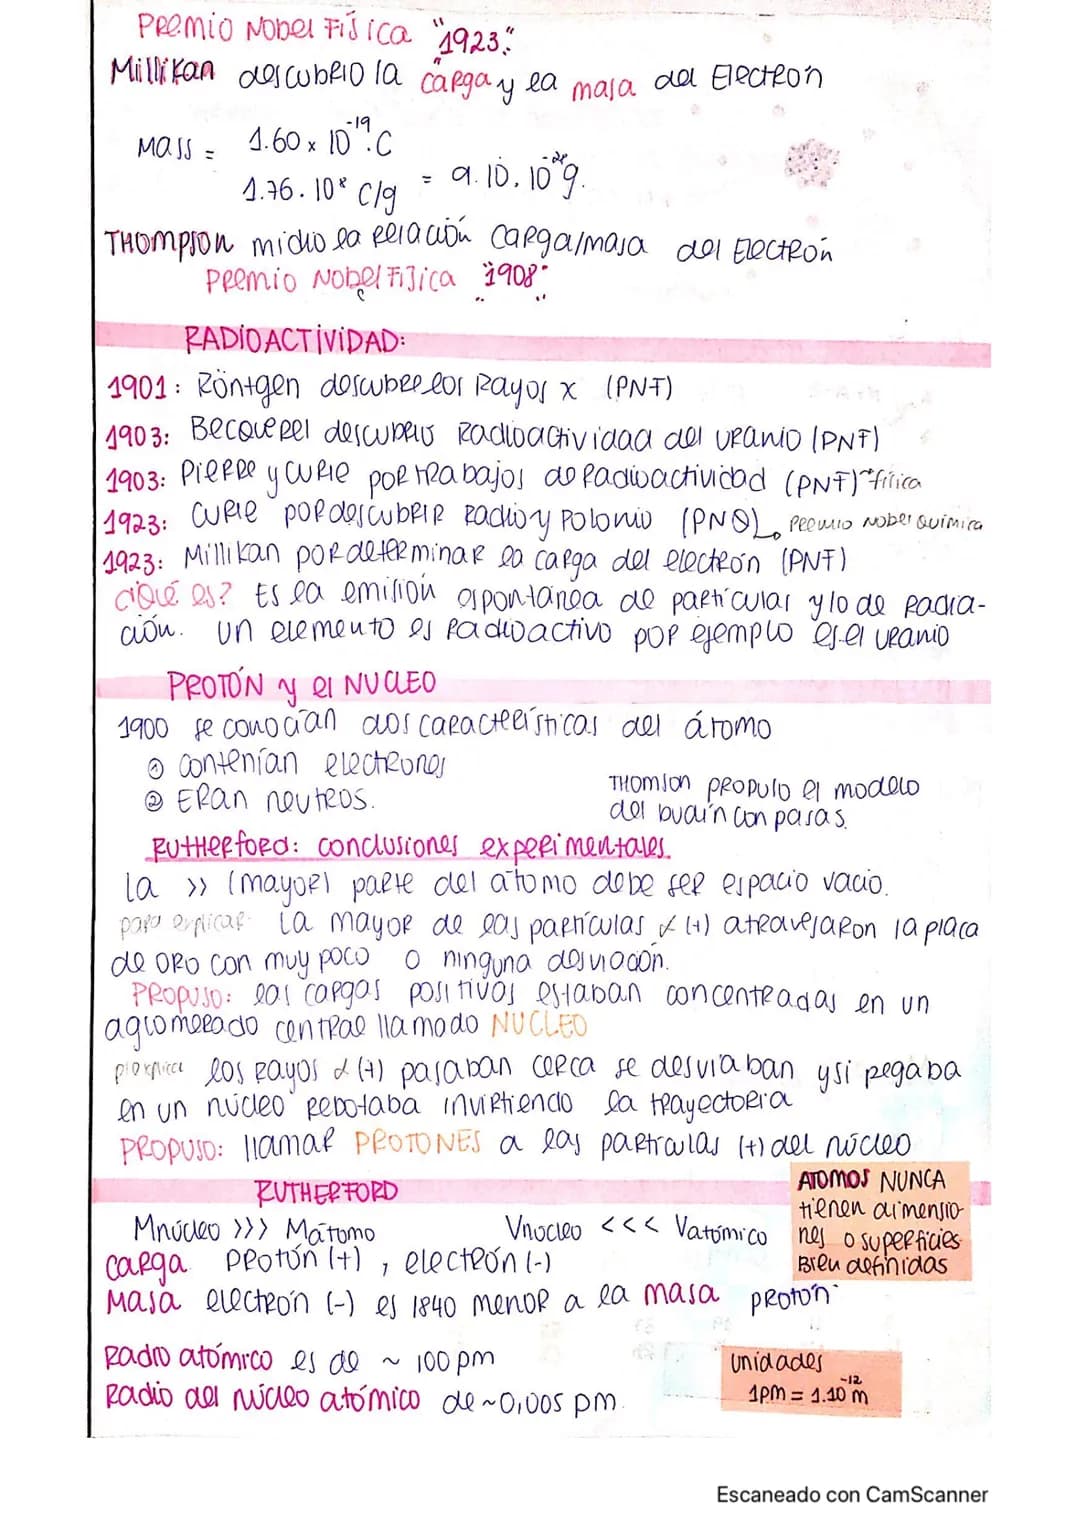 Premio Nobel Física "1923"
Millikan descubrio la carga y la masa del Electrón
Mass = 1.60 x 10⁻¹⁹ C
1.76 . 10⁸ C/g = 9.10 . 10⁻²⁸ g.
THOMPSON midio la relación carga/masa del Electrón
Premio Nobel Fisica "1908"
RADIOACTIVIDAD:
1901: Röntgen descubre los Rayos x (PNF)
1903: Becquerel descubrio Radioactividad del uranio (PNF)
1903: Pierre y Curie por trabajos de Radioactividad (PNF) física
1923: Curie por descubrir Radio y Polonio (PNQ) Premio Nobel Química
1923: Millikan por determinar la carga del electrón (PNF)
¿Qué es? Es la emisión espontánea de partículas y/o de Radia-
ción. un elemento es Radioactivo por ejemplo es el uranio
PROTÓN y el NUCLEO
1900 se conocían dos características del átomo
① contenían electrones
② Eran neutros.
Thomson propuso el modelo
del budín con pasas.
Rutherford: conclusiones experimentales.
la >> (mayor) parte del átomo debe ser espacio vacio.
para explicar La mayor de las partículas α (+) atravesaron la placa
de oro con muy poco o ninguna desviación.
PROPUSO: las cargas positivas estaban concentradas en un
aglomerado central llamado NUCLEO
los Rayos α (+) pasaban cerca se desviaban y si pegaba
en un núcleo Rebotaba invirtiendo la trayectoria
PROPUSO: llamar PROTONES a las partículas (+) del núcleo
RUTHERFORD
ATOMOS NUNCA
tienen dimensio-
nes o superficies
Bien definidas
Mnúcleo >>> Mátomo Vnucleo <<< Vatómico
Carga Protón (+), electrón (-)
Masa electrón (-) es 1840 menor a la masa protón
Radio atómico es de ~ 100 pm
Radio del núcleo atómico de ~0,005 pm.
Unidades
1pm = 1.10⁻¹² m
Escaneado con CamScanner